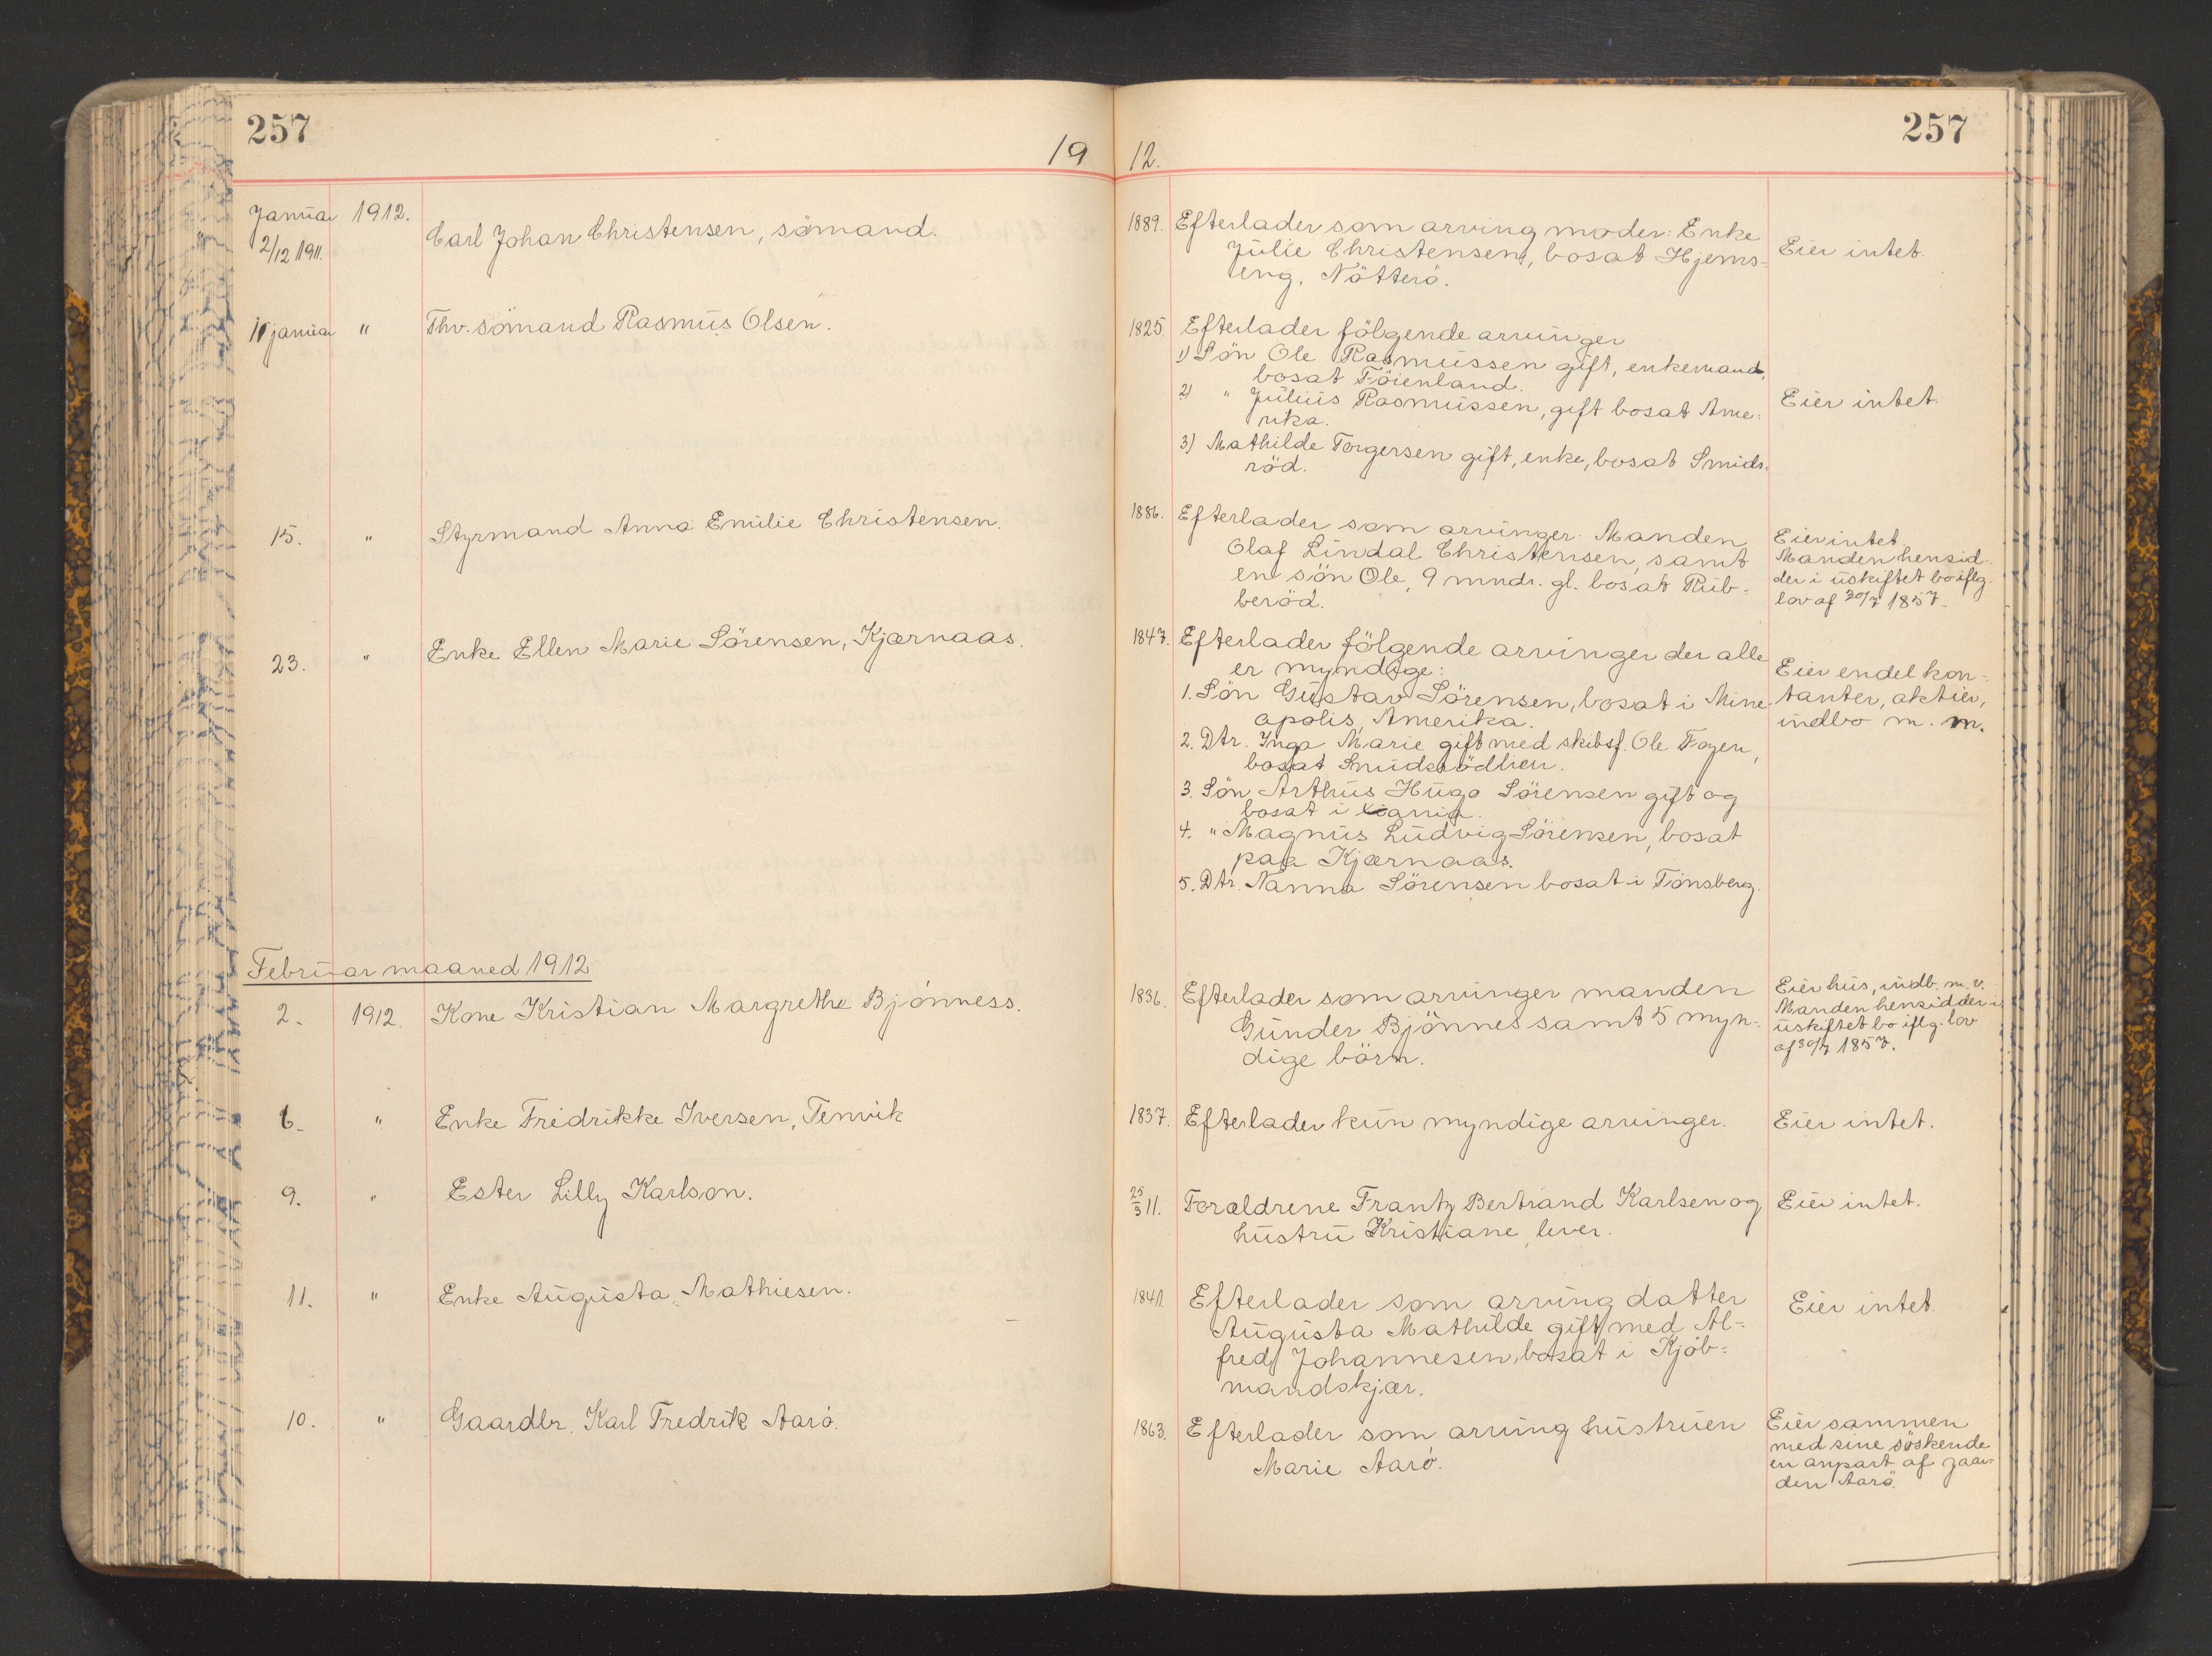 257
19 12.
257
Januar 1912.
2/12 1911.
Carl Johan Christensen, sömand.
1889. Efterlader som arving moder: Enke
Julie Christensen, bosat Hjems-
eng, Nötterö.
Eier intet.
januar " Thv. sömand Rasmus Olsen.
1825. Efterlader fölgende arvinger
1) Sön Ole Rasmussen gift, enkemand,
bosat Föienland.
2) " Julius Rasmussen, gift bosat Ame-
rika.
3) Mathilde Torgersen gift, enke, bosat Smids-
röd.
Eier intet.
15. " Styrmand Anna Emilie Christensen.
1886. Efterlader som arvinger: Manden
Olaf Lindal Christensen, samt
en sön Ole, 9 mndr. gl. bosat Rub-
beröd.
Eier intet.
Manden hensid-
der i uskiftet bo iflg.
lov af 30/7 1857.
23. " Enke Ellen Marie Sörensen, Kjærnaas.
1847. Efterlader fölgende arvinger der alle
er myndige:
1. Sön Gustav Sörensen, bosat i Mine-
apolis, Amerika.
2. Dtr. Inga Marie gift med skibsf. Ole Foyen,
bosat Smidsrödlien.
3. Sön Arthus Hugo Sörensen gift og
bosat i Xiania.
4. " Magnus Ludvig Sörensen, bosat
paa Kjærnaas.
5. Dtr. Nanna Sörensen bosat i Tönsberg.
Eier endel kon-
tanter, aktier,
indbo m. m.
Februar maaned 1912
2. 1912. Kone Kristian Margrethe Bjönness.
1836. Efterlader som arvinger manden
Gunder Bjönnes samt 5 myn-
dige börn.
Eier hus, indb. m. v.
Manden hensidder i
uskiftet bo iflg. lov
af 30/7 1857.
6. " Enke Fredrikke Iversen, Tenvik
1837. Efterlader kun myndige arvinger.
Eier intet.
9. " Ester Lilly Karlson.
25/3 11. Forældrene Frantz Bertrand Karlsen og
hustru Kristiane, lever.
Eier intet.
11. " Enke Augusta Mathiesen.
1841. Efterlader som arving datter
Augusta Mathilde gift med Al-
fred Johannesen, bosat i Kjöb-
mandskjær.
Eier intet.
10. " Gaardbr. Karl Fredrik Aarö.
1863. Efterlader som arving hustruen
Marie Aarö.
Eier sammen
med sine söskende
en anpart af gaar-
den Aarö.